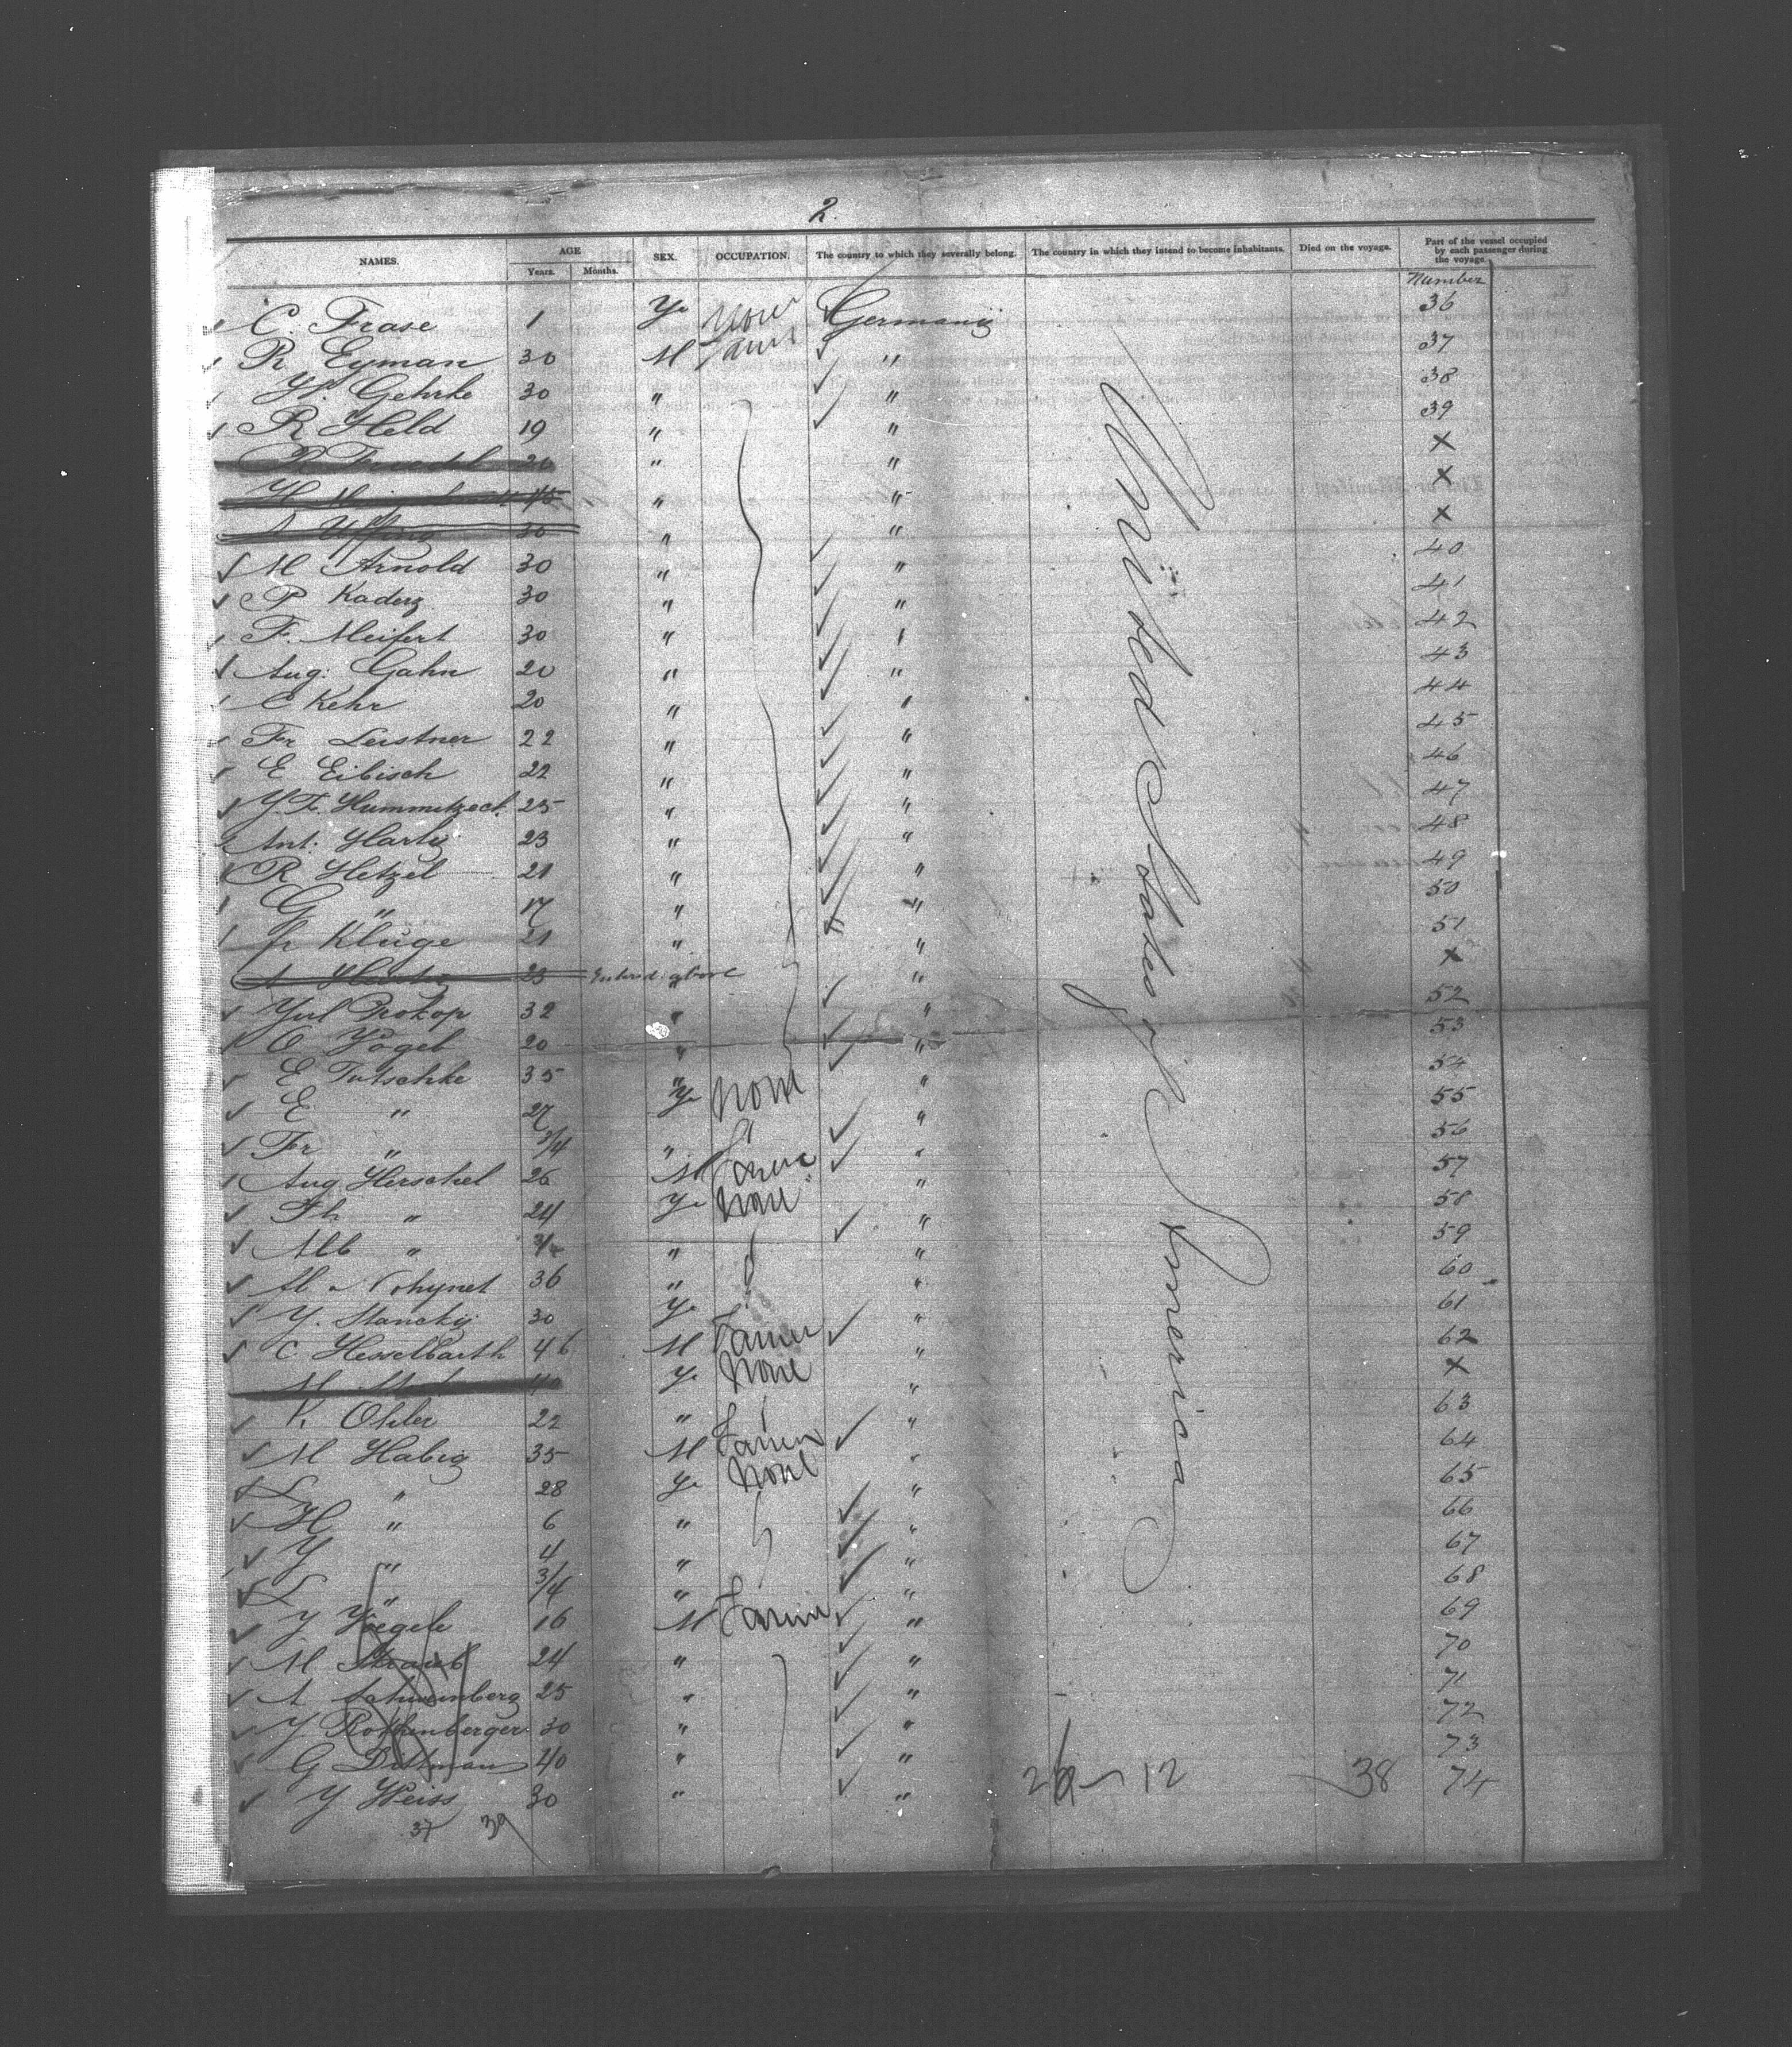 2.
NAMES. AGE SEX. OCCUPATION. The country to which they severally belong. The country in which they intend to become inhabitants. Died on the voyage. Part of the vessel occupied by each passenger during the voyage.
Years. Months.
Number
C. Frase 1 Ye None Germany 36
R Eyman 30 M Farmer " 37
H. Gehrke 30 " " 38
R Held 19 " " 39
R Friedel 20 " " x
H 45 " " x
A Uffing 30 " " x
M Arnold 30 " " 40
P Kaderz 30 " " 41
F. Meifert 30 " " 42
Aug: Gahn 20 " " 43
C Kehr 20 " " 44
Fr Leistner 22 " " 45
E Eibisch 22 " " 46
Y. F. Hummitzsch. 25 " " 47
Ant: Hartig 23 " " 48
R Hetzel 21 " " 49
G " 17 " " 50
fr Kluge 21 " " 51
A Hartig 23 " " x
Jul Prokop 32 " " 52
O Vogel 20 " " 53
E Tutschke 35 " " 54
E " 27 Ye None " 55
Fr " 3/4 " " 56
Aug Herschel 26 M Farmer " 57
Th " 24 Ye None " 58
Alb " 3/4 " " 59
M 36 " " 60
Y. Stancky 30 Ye " 61
C Hesselbarth 46 M Farmer " 62
M 40 Ye None " x
K Ohler 22 " " 63
M Habig 35 M Farmer " 64
L " 28 Ye None " 65
H " 6 " " 66
Y " 4 " " 67
L " 3/4 " " 68
Y Voegele 16 M Farmer " 69
M Straub 24 " " 70
A Schwinberg 25 " " 71
Y Rothenberger 30 " " 72
G Dittman 40 " " 73
Y Weiss 30 " " 74
United States of America
26 12 38
37 39